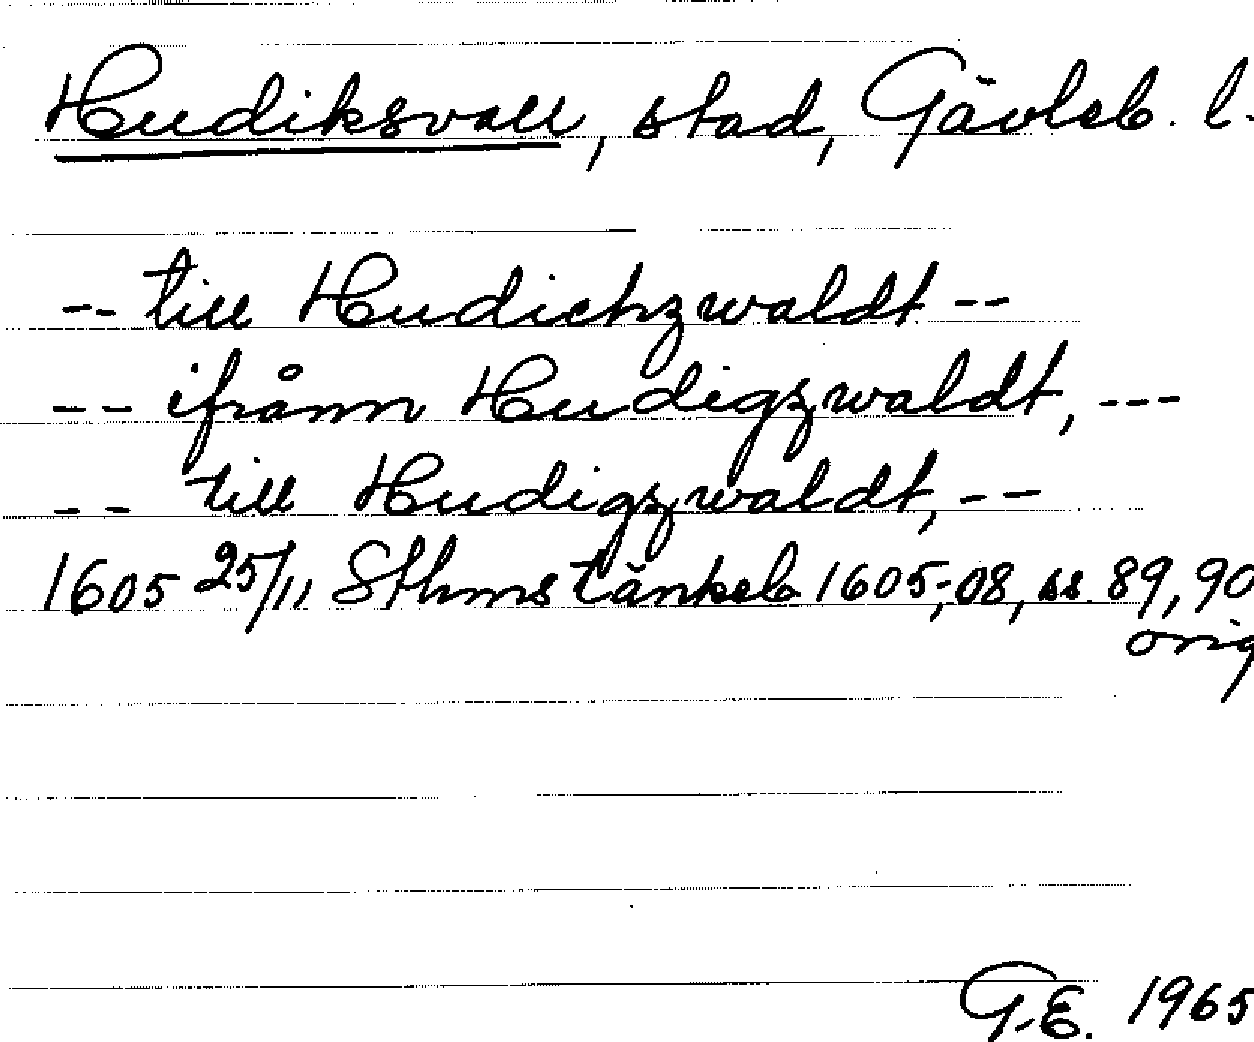 Hudiksvall, stad, Gävleb. l.
-- till Hudichzwaldt --
-- ifrånn Hudigzwaldt, ---
-- till Hudigzwaldt, --
1605 25/11 Sthms tänkeb 1605-08, ss. 89, 90
orig
G.E. 1965